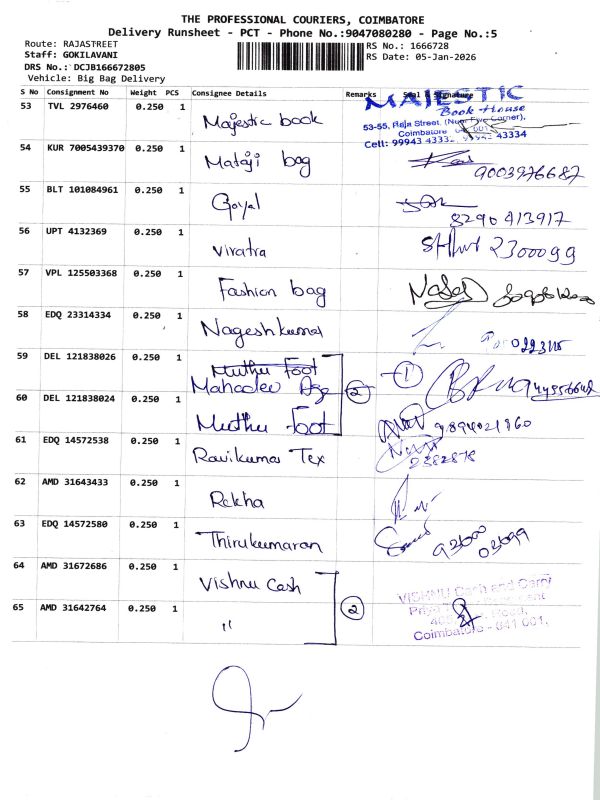 THE PROFESSIONAL COURIERS, COIMBATORE
Delivery Runsheet - PCT - Phone No.:9047080280 - Page No.:5
Route: RAJASTREET
Staff: GOKILAVANI
DRS No.: DCJB166672805
Vehicle: Big Bag Delivery
RS No.: 1666728
RS Date: 05-Jan-2026
S No Consignment No Weight PCS Consignee Details Remarks Seal & Signature
53 TVL 2976460 0.250 1 Majestic book
MAJESTIC
Book House
53-55, Raja Street, (Near Five Corner),
Coimbatore 641 001
Cell: 99943 43334
54 KUR 7005439370 0.250 1 Mataji bag 9003976687
55 BLT 101084961 0.250 1 Goyal 8290413917
56 UPT 4132369 0.250 1 Viratra 2300099
57 VPL 125503368 0.250 1 Fashion bag
58 EDQ 23314334 0.250 1 Nageshkumar
59 DEL 121838026 0.250 1 Muthu Foot
Mahadev 2 1
60 DEL 121838024 0.250 1 Muthu Foot 9894021860
61 EDQ 14572538 0.250 1 Ravikumar Tex 2382878
62 AMD 31643433 0.250 1 Rekha
63 EDQ 14572580 0.250 1 Thirukumaran
64 AMD 31672686 0.250 1 Vishnu Cash
65 AMD 31642764 0.250 1 " 2
VISHNU Cash and Carry
Coimbatore - 641 001.